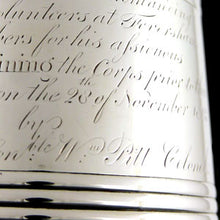 olunteers at Feversha
ers for his assiduous
ining the Corps prior to
on the 26th of November
by
Wm. Pitt Colone